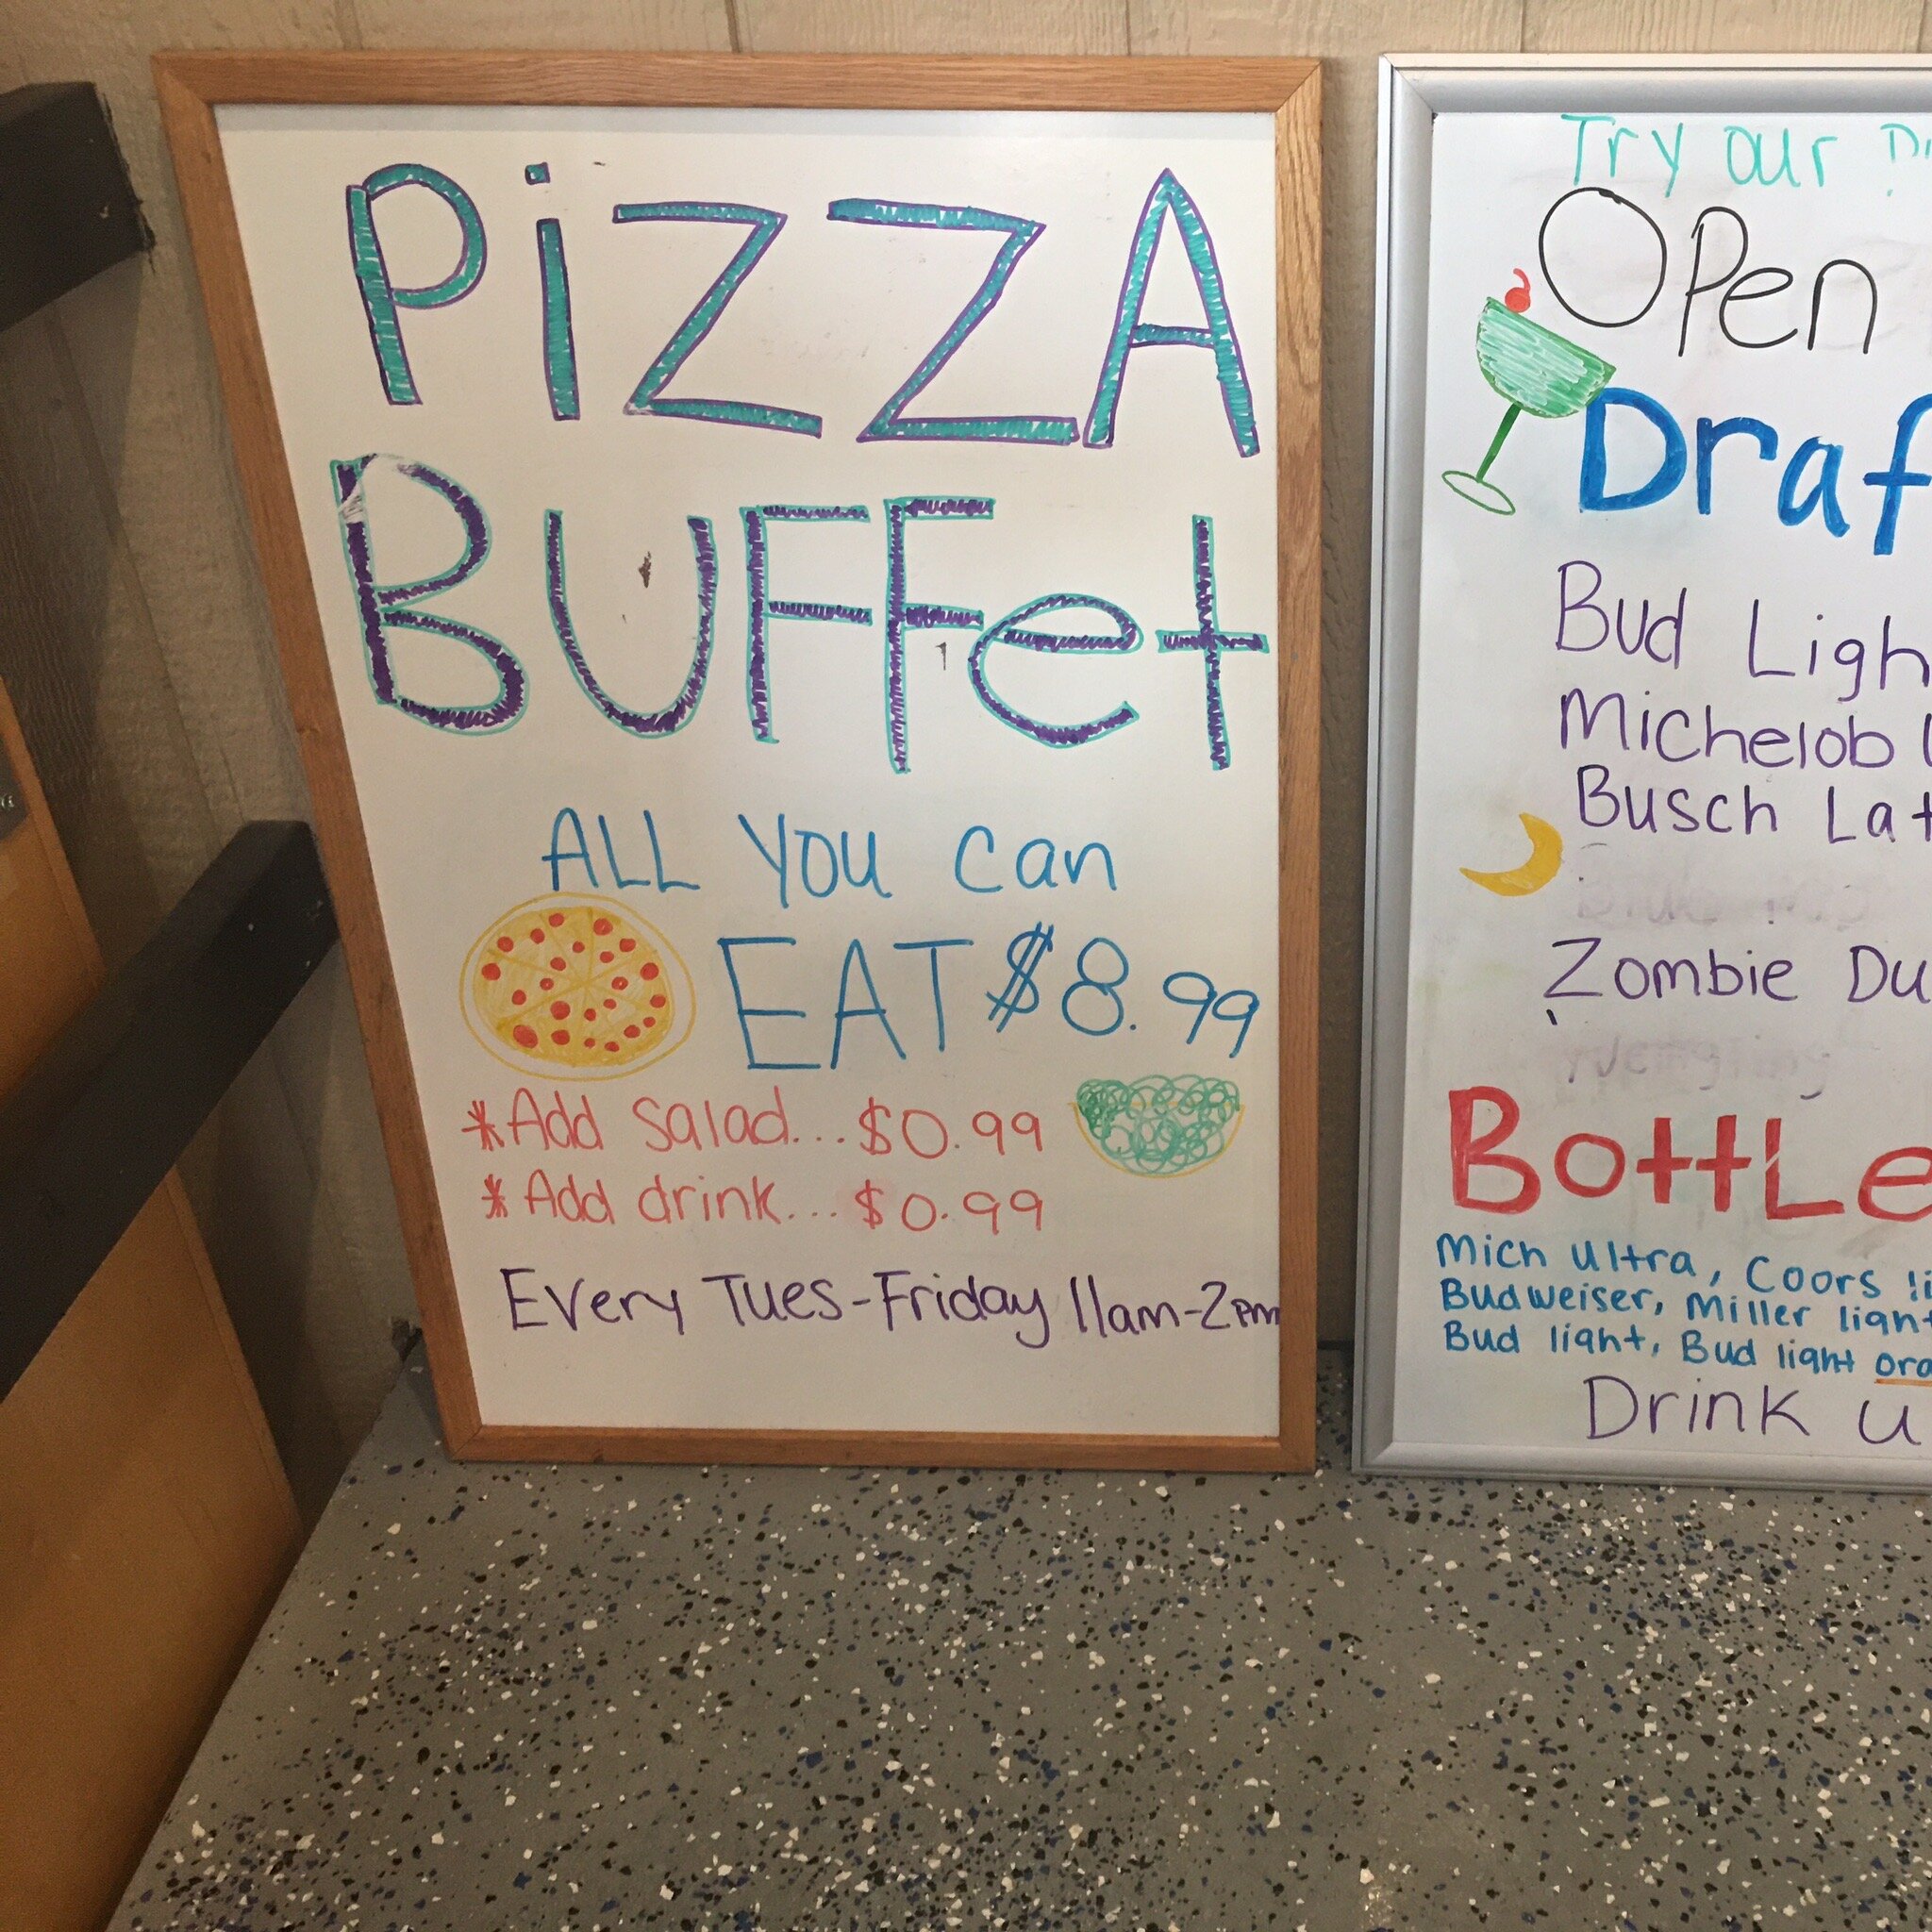 PiZZA
BUFFet
ALL You can
EAT $8.99
*Add salad... $0.99
*Add drink... $0.99
Every Tues-Friday 11am-2pm
Try our
Open
Draf
Bud Ligh
Michelob
Busch Lat
Zombie Du
Yuengling
BottLe
Mich ultra, Coors li
Budweiser, Miller light
Bud light, Bud light ora
Drink u